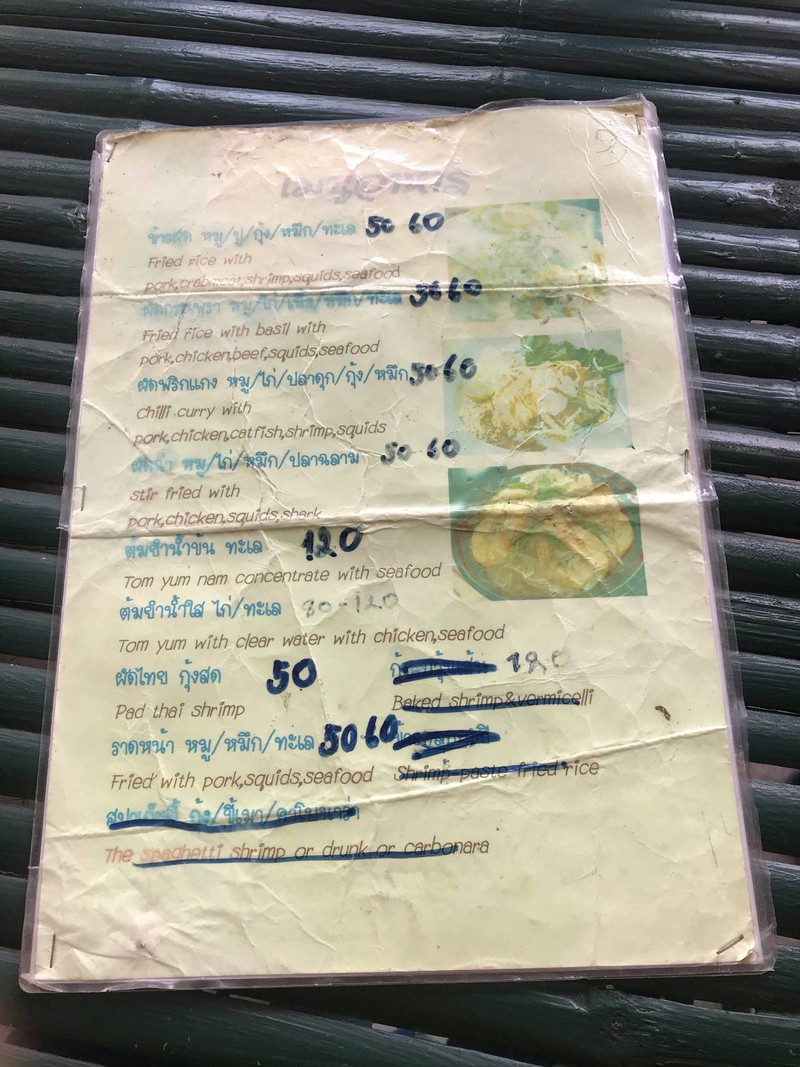 เมนูอาหาร
ข้าวผัด หมู/ปู/กุ้ง/หมึก/ทะเล 50 60
Fried rice with
pork,crabmeat,shrimp,squids,seafood
ผัดกระเพรา หมู/ไก่/เนื้อ/หมึก/ทะเล 50 60
Fried rice with basil with
pork,chicken,beef,squids,seafood
ผัดพริกแกง หมู/ไก่/ปลาดุก/กุ้ง/หมึก 50 60
Chilli curry with
pork,chicken,catfish,shrimp,squids
ผัดฉ่า หมู/ไก่/หมึก/ปลาฉลาม 50 60
stir fried with
pork,chicken,squids,shark
ต้มยำน้ำข้น ทะเล 120
Tom yum nam concentrate with seafood
ต้มยำน้ำใส ไก่/ทะเล 80-120
Tom yum with clear water with chicken,seafood
ผัดไทย กุ้งสด 50
Pad thai shrimp
120
Baked shrimp&vermicelli
ราดหน้า หมู/หมึก/ทะเล 50 60
Fried with pork,squids,seafood
Shrimp-paste fried rice
สปาเก็ตตี้ กุ้ง/ขี้เมา/คาโบนาร่า
The spaghetti shrimp or drunk or carbonara